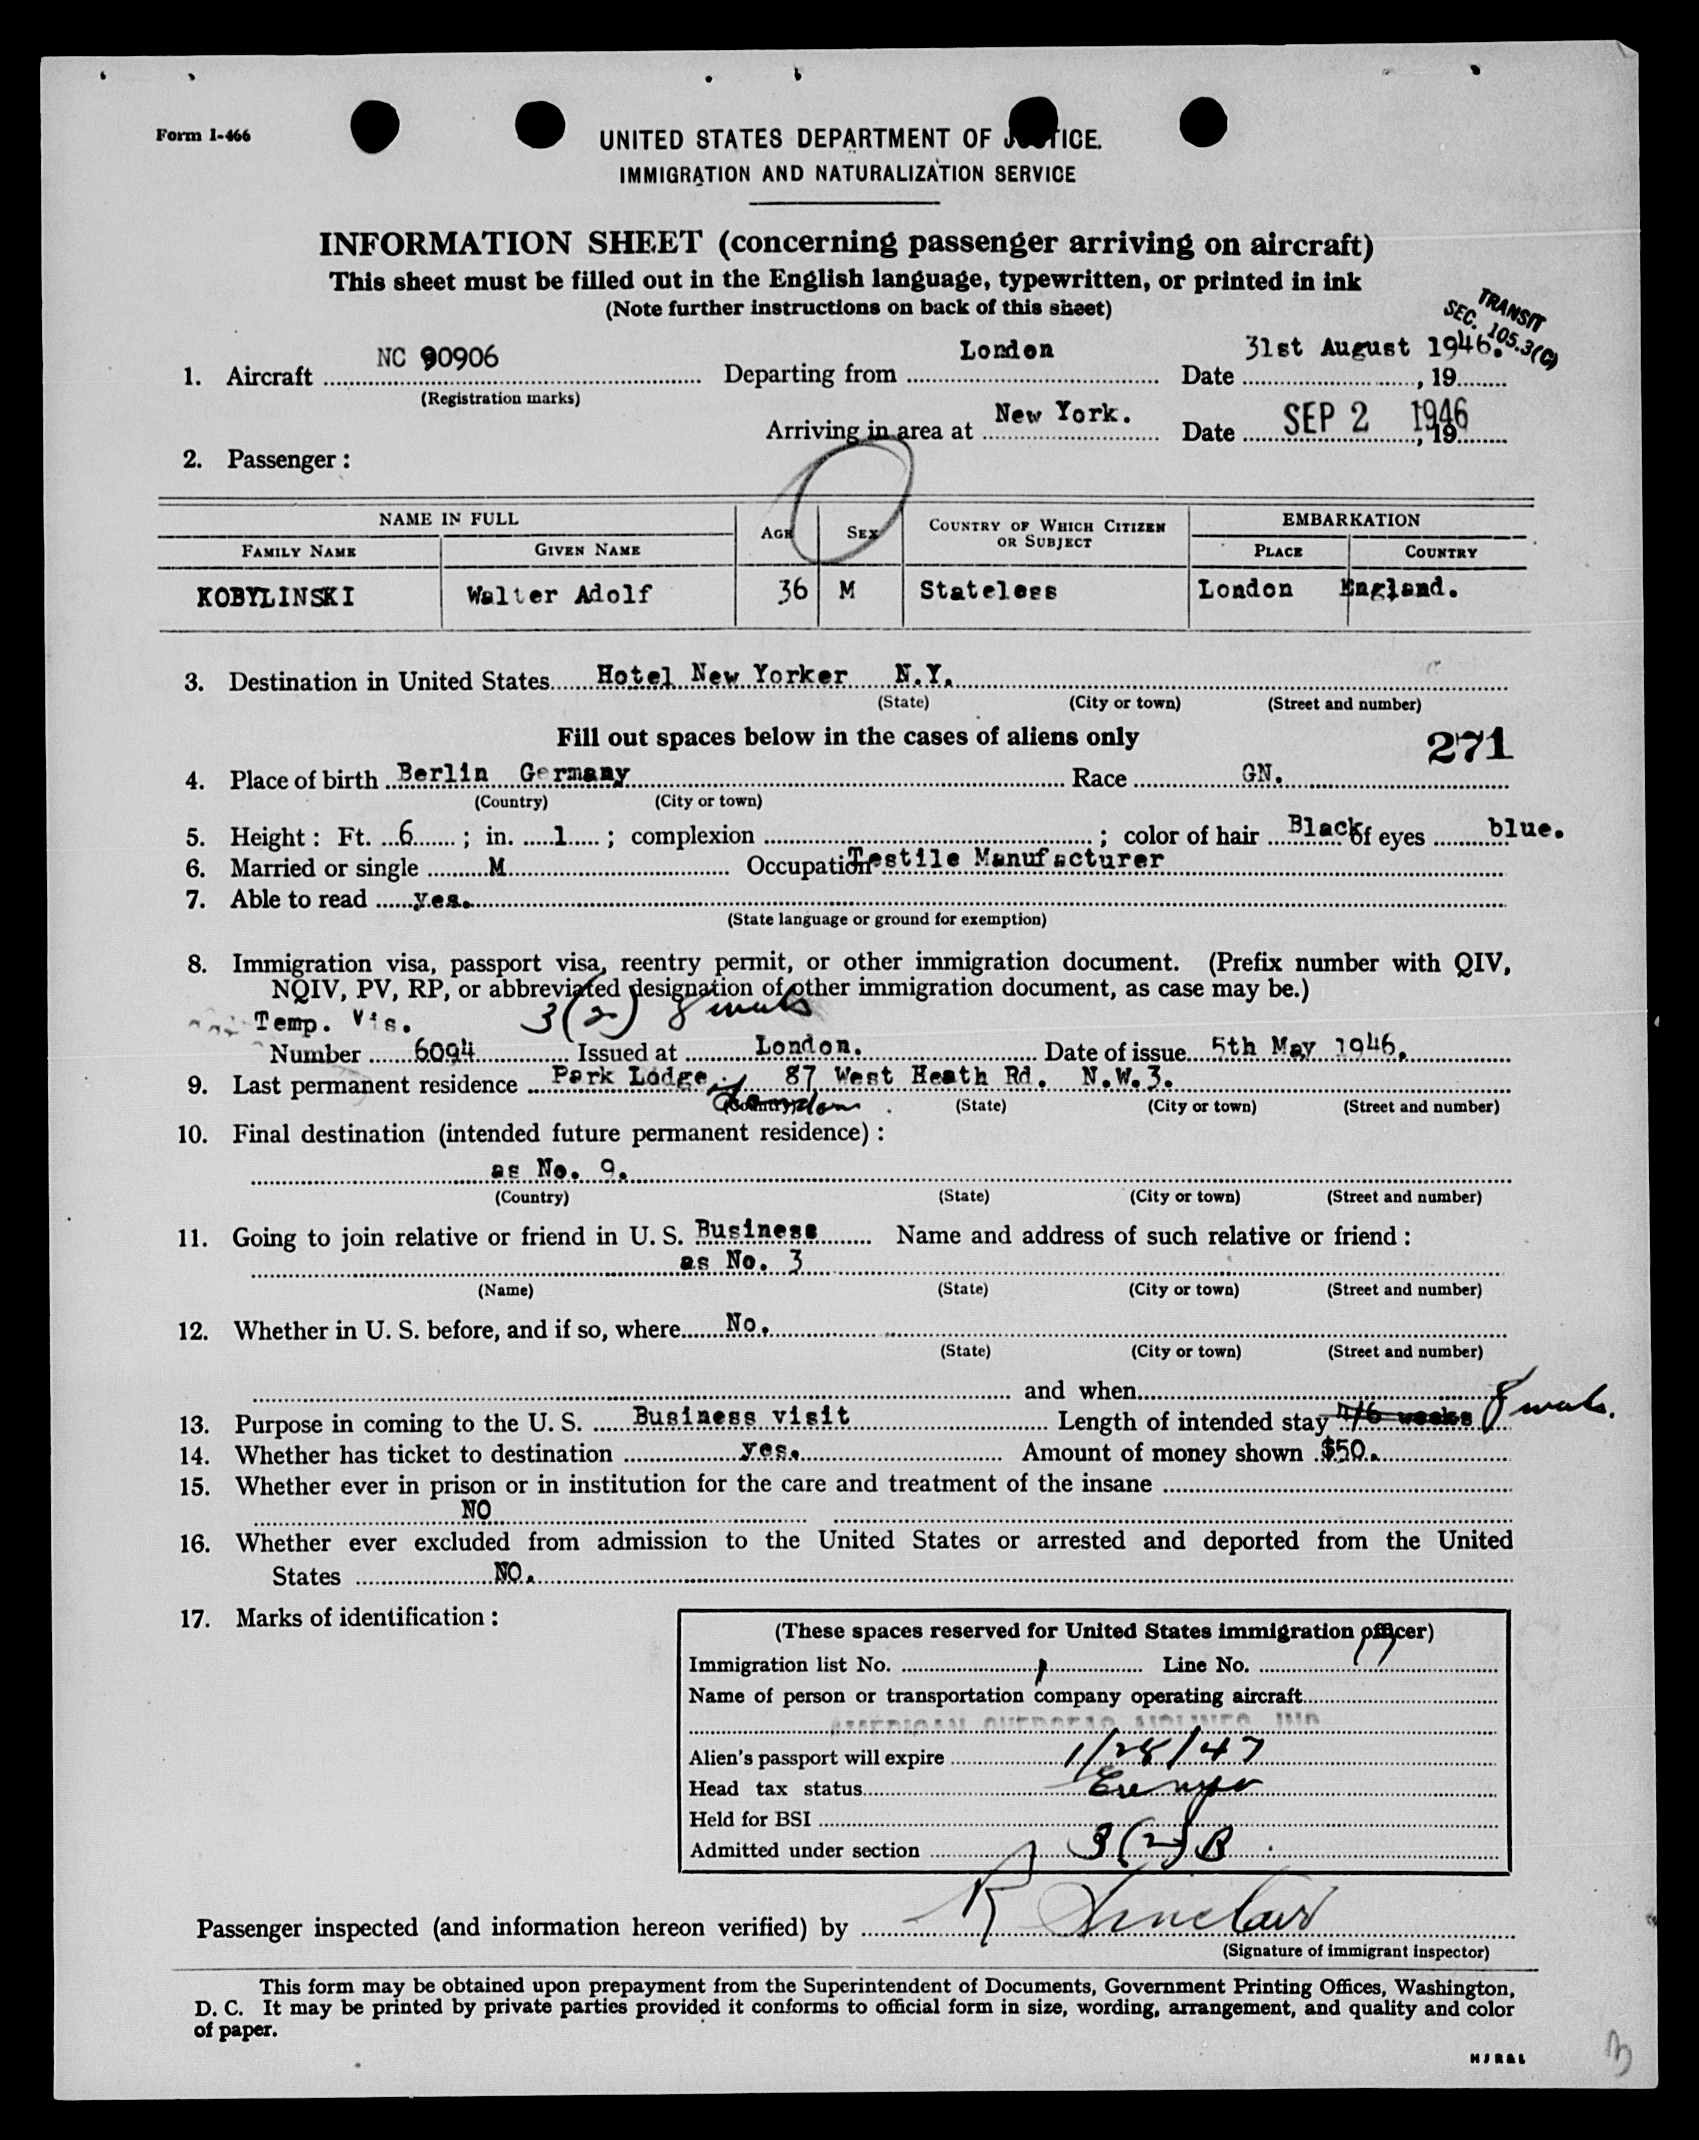 Form I-466
UNITED STATES DEPARTMENT OF JUSTICE.
IMMIGRATION AND NATURALIZATION SERVICE
INFORMATION SHEET (concerning passenger arriving on aircraft)
This sheet must be filled out in the English language, typewritten, or printed in ink
(Note further instructions on back of this sheet)
TRANSIT
SEC. 105.3(C)
1. Aircraft NC 90906 Departing from London Date 31st August 1946. , 19
(Registration marks)
Arriving in area at New York. Date SEP 2 1946 , 19
2. Passenger :
NAME IN FULL AGE SEX COUNTRY OF WHICH CITIZEN OR SUBJECT EMBARKATION
FAMILY NAME GIVEN NAME PLACE COUNTRY
KOBYLINSKI Walter Adolf 36 M Stateless London England.
3. Destination in United States Hotel New Yorker N.Y.
(State) (City or town) (Street and number)
Fill out spaces below in the cases of aliens only
271
4. Place of birth Berlin Germany Race GN.
(Country) (City or town)
5. Height : Ft. 6 ; in. 1 ; complexion ; color of hair Black of eyes blue.
6. Married or single M Occupation Testile Manufacturer
7. Able to read yes.
(State language or ground for exemption)
8. Immigration visa, passport visa, reentry permit, or other immigration document. (Prefix number with QIV,
NQIV, PV, RP, or abbreviated designation of other immigration document, as case may be.)
Temp. Vis. 3(2) 8 weeks
Number 6094 Issued at London. Date of issue 5th May 1946.
9. Last permanent residence Park Lodge, 87 West Heath Rd. N.W.3.
London
(Country) (State) (City or town) (Street and number)
10. Final destination (intended future permanent residence) :
as No. 9.
(Country) (State) (City or town) (Street and number)
11. Going to join relative or friend in U. S. Business Name and address of such relative or friend :
as No. 3
(Name) (State) (City or town) (Street and number)
12. Whether in U. S. before, and if so, where No.
(State) (City or town) (Street and number)
and when
13. Purpose in coming to the U. S. Business visit Length of intended stay 4/6 weeks 8 weeks.
14. Whether has ticket to destination yes. Amount of money shown $50.
15. Whether ever in prison or in institution for the care and treatment of the insane
NO
16. Whether ever excluded from admission to the United States or arrested and deported from the United
States NO.
17. Marks of identification :
(These spaces reserved for United States immigration officer)
Immigration list No. 1 Line No. 17
Name of person or transportation company operating aircraft
AMERICAN OVERSEAS AIRLINES, INC
Alien's passport will expire 1/28/47
Head tax status
Held for BSI
Admitted under section 3(2) B
Passenger inspected (and information hereon verified) by R Sinclair
(Signature of immigrant inspector)
This form may be obtained upon prepayment from the Superintendent of Documents, Government Printing Offices, Washington,
D. C. It may be printed by private parties provided it conforms to official form in size, wording, arrangement, and quality and color
of paper.